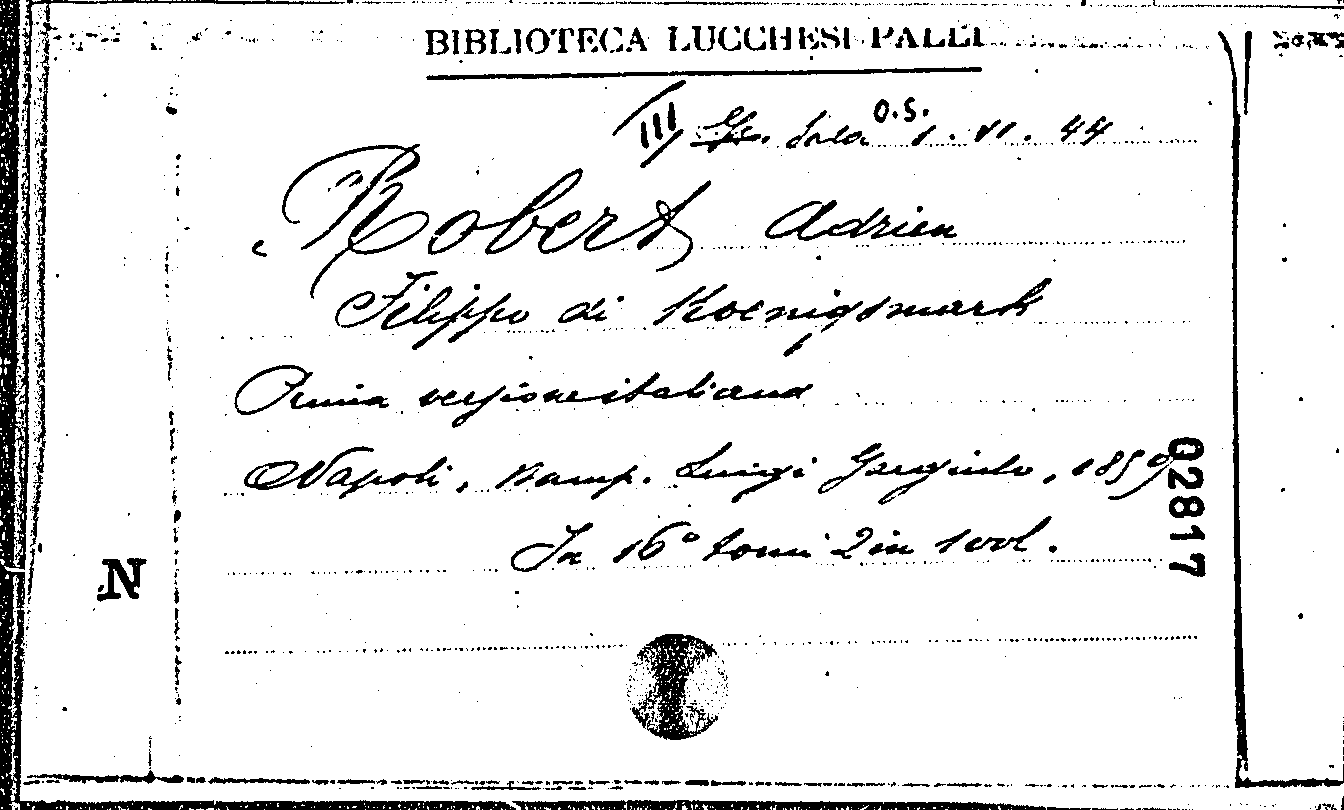 BIBLIOTECA LUCCHESI PALLI
III Gr. Sala O.S. 1. VI. 44
Robert Adrien
Filippo di Koenigsmark
Prima versione italiana
Napoli, Stamp. Luigi Gargiulo, 1859
In 16° tomi 2 in 1 vol.
02817
N